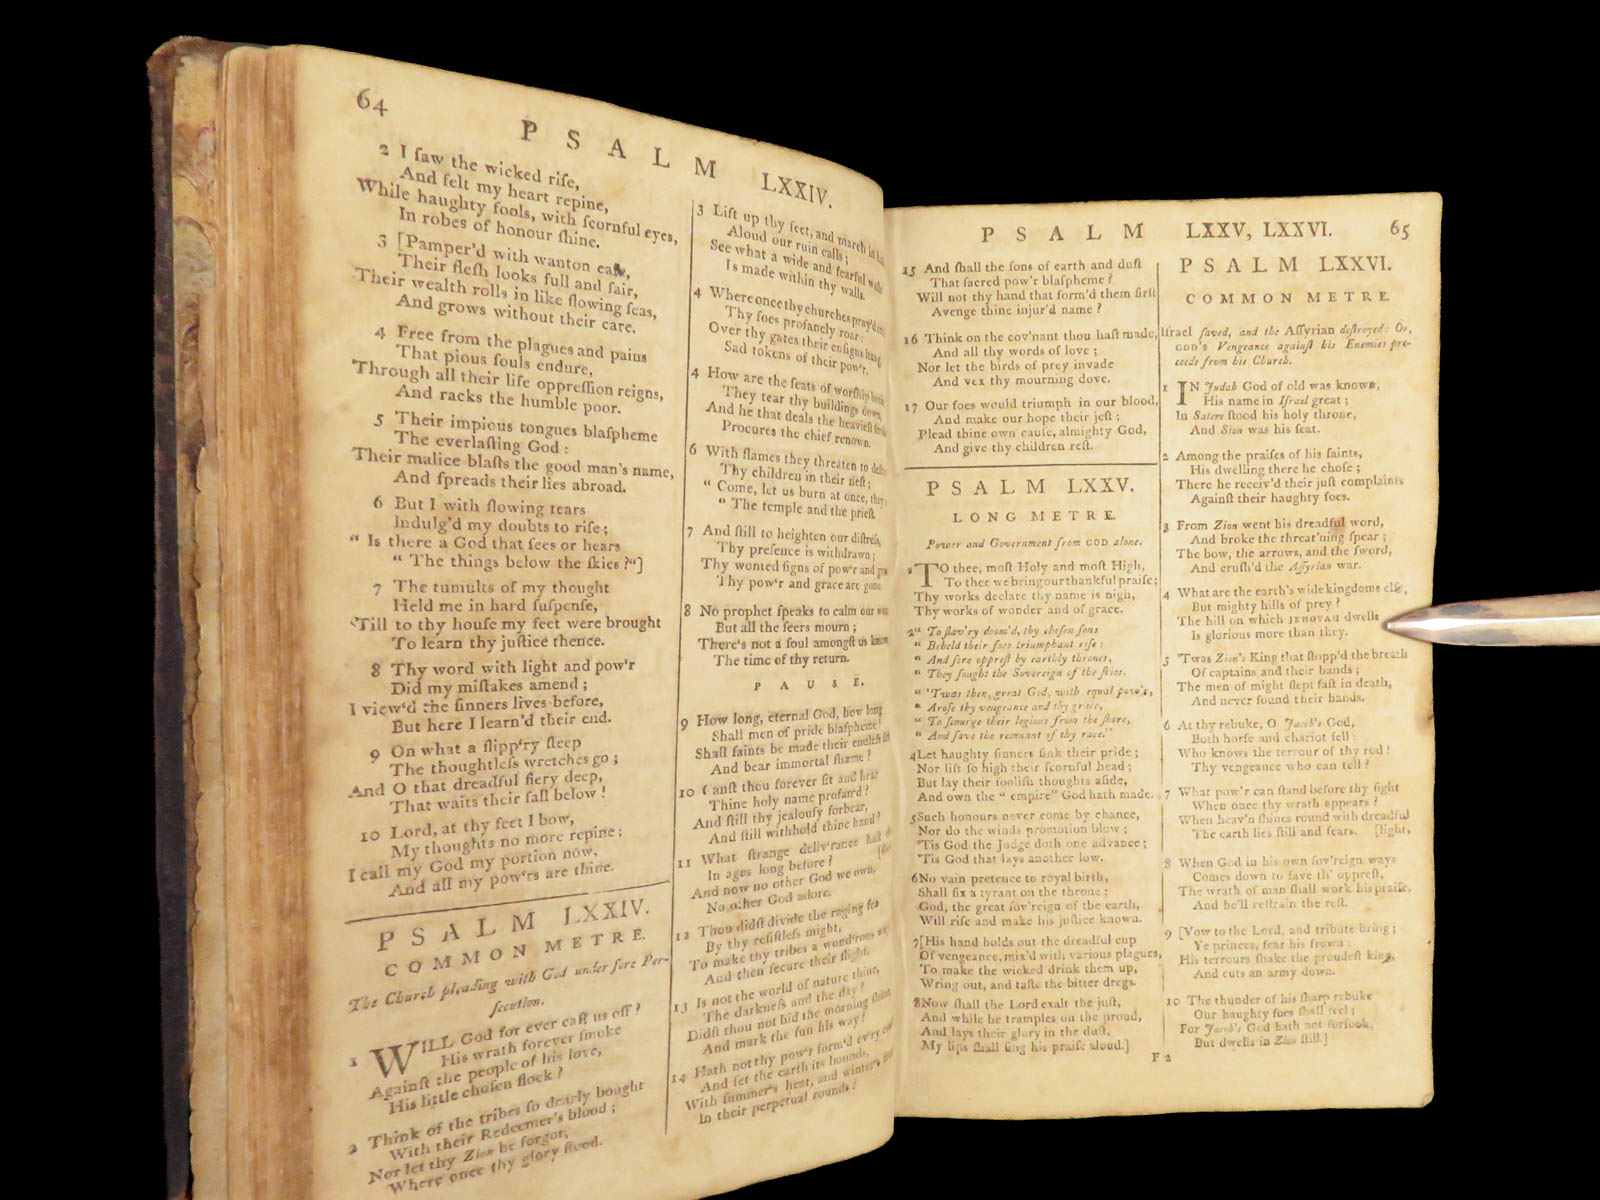 64
PSALM LXXIV.
2 I ſaw the wicked riſe,
And felt my heart repine,
While haughty fools, with ſcornful eyes,
In robes of honour ſhine.
3 [Pamper'd with wanton eaſe,
Their fleſh looks full and fair,
Their wealth rolls in like flowing ſeas,
And grows without their care.
4 Free from the plagues and pains
That pious ſouls endure,
Through all their life oppreſſion reigns,
And racks the humble poor.
5 Their impious tongues blaſpheme
The everlaſting God:
Their malice blaſts the good man's name,
And ſpreads their lies abroad.
6 But I with flowing tears
Indulg'd my doubts to riſe;
“ Is there a God that ſees or hears
“ The things below the ſkies?”]
7 The tumults of my thought
Held me in hard ſuſpenſe,
'Till to thy houſe my feet were brought
To learn thy juſtice thence.
8 Thy word with light and pow'r
Did my miſtakes amend;
I view'd the ſinners lives before,
But here I learn'd their end.
9 On what a ſlipp'ry ſteep
The thoughtleſs wretches go;
And O that dreadful fiery deep,
That waits their fall below!
10 Lord, at thy feet I bow,
My thoughts no more repine;
I call my God my portion now,
And all my pow'rs are thine.
PSALM LXXIV.
COMMON METRE.
The Church pleading with God under ſore Per-
ſecution.
1 WILL God for ever caſt us off?
His wrath forever ſmoke
Againſt the people of his love,
His little choſen flock?
2 Think of the tribes ſo dearly bought
With their Redeemer's blood;
Nor let thy Zion be forgot,
Where once thy glory ſtood.
3 Lift up thy feet, and march in
Aloud our ruin calls;
See what a wide and fearful
Is made within thy walls.
4 Where once thy churches pray'd
Thy foes profanely roar:
Over thy gates their enſigns hang
Sad tokens of their pow'r.
4 How are the ſeats of worſhip
They tear thy buildings down,
And he that deals the heavieſt
Procures the chief renown.
6 With flames they threaten to
Thy children in their neſt;
“ Come, let us burn at once, they
“ The temple and the prieſt.
7 And ſtill to heighten our diſtreſs,
Thy preſence is withdrawn;
Thy wonted ſigns of pow'r and
Thy pow'r and grace are gone.
8 No prophet ſpeaks to calm our
But all the ſeers mourn;
There's not a ſoul amongſt us knows
The time of thy return.
PAUSE.
9 How long, eternal God, how long
Shall men of pride blaſpheme?
Shall ſaints be made their endleſs
And bear immortal ſhame?
10 Canſt thou forever ſit and hear
Thine holy name profan'd?
And ſtill thy jealouſy forbear,
And ſtill withhold thine hand?
11 What ſtrange deliv'rance haſt
In ages long before?
And now no other God we own,
No other God adore.
12 Thou didſt divide the raging ſea
By thy reſiſtleſs might,
To make thy tribes a wond'rous
And then ſecure their flight.
13 Is not the world of nature thine,
The darkneſs and the day?
Didſt thou not bid the morning ſhine,
And mark the ſun his way?
14 Hath not thy pow'r form'd ev'ry
And ſet the earth its bounds,
With ſummer's heat, and winter's
In their perpetual rounds?
PSALM LXXV, LXXVI. 65
15 And ſhall the ſons of earth and duſt
That ſacred pow'r blaſpheme?
Will not thy hand that form'd them firſt
Avenge thine injur'd name?
16 Think on the cov'nant thou haſt made,
And all thy words of love;
Nor let the birds of prey invade
And vex thy mourning dove.
17 Our foes would triumph in our blood,
And make our hope their jeſt;
Plead thine own cauſe, almighty God,
And give thy children reſt.
PSALM LXXV.
LONG METRE.
Power and Government from GOD alone.
1 TO thee, moſt Holy and moſt High,
To thee we bring our thankful praiſe;
Thy works declare thy name is nigh,
Thy works of wonder and of grace.
2 “ To ſlav'ry doom'd, thy choſen ſons
“ Beheld their foes triumphant riſe;
“ And ſore oppreſt by earthly thrones,
“ They ſought the Sovereign of the ſkies.
“ 'Twas then, great God, with equal pow'r,
“ Aroſe thy vengeance and thy grace,
“ To ſcourge their legions from the ſhore,
“ And ſave the remnant of thy race.”
4 Let haughty ſinners ſink their pride;
Nor lift ſo high their ſcornful head;
But lay their fooliſh thoughts aſide,
And own the “ empire” God hath made.
5 Such honours never come by chance,
Nor do the winds promotion blow;
'Tis God the Judge doth one advance;
'Tis God that lays another low.
6 No vain pretence to royal birth,
Shall fix a tyrant on the throne;
God, the great ſov'reign of the earth,
Will riſe and make his juſtice known.
7 [His hand holds out the dreadful cup
Of vengeance, mix'd with various plagues,
To make the wicked drink them up,
Wring out, and taſte the bitter dregs.
8 Now ſhall the Lord exalt the juſt,
And while he tramples on the proud,
And lays their glory in the duſt,
My lips ſhall ſing his praiſe aloud.]
F 2
PSALM LXXVI.
COMMON METRE.
Iſrael ſaved, and the Aſſyrian deſtroyed: Or,
GOD's Vengeance againſt his Enemies pro-
ceeds from his Church.
1 IN Judah God of old was known,
His name in Iſrael great;
In Salem ſtood his holy throne,
And Sion was his ſeat.
2 Among the praiſes of his ſaints,
His dwelling there he choſe;
There he receiv'd their juſt complaints
Againſt their haughty foes.
3 From Zion went his dreadful word,
And broke the threat'ning ſpear;
The bow, the arrows, and the ſword,
And cruſh'd the Aſſyrian war.
4 What are the earth's wide kingdoms elſe,
But mighty hills of prey?
The hill on which JEHOVAH dwells
Is glorious more than they.
5 'Twas Zion's King that ſtopp'd the breath
Of captains and their bands;
The men of might ſlept faſt in death,
And never found their hands.
6 At thy rebuke, O Jacob's God,
Both horſe and chariot fell:
Who knows the terrour of thy rod!
Thy vengeance who can tell?
7 What pow'r can ſtand before thy ſight
When once thy wrath appears?
When heav'n ſhines round with dreadful
The earth lies ſtill and fears. [light,
8 When God in his own ſov'reign ways
Comes down to ſave th' oppreſt,
The wrath of man ſhall work his praiſe,
And he'll reſtrain the reſt.
9 [Vow to the Lord, and tribute bring;
Ye princes, fear his frown:
His terrours ſhake the proudeſt king,
And cuts an army down.
10 The thunder of his ſharp rebuke
Our haughty foes ſhall feel;
For Jacob's God hath not forſook,
But dwells in Zion ſtill.]